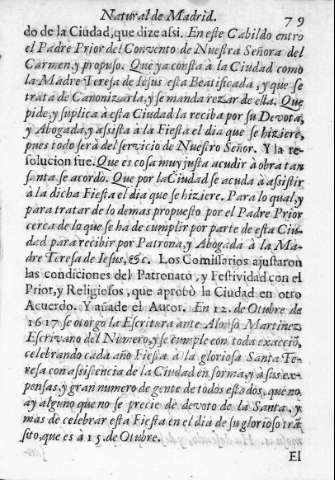 Natural de Madrid. 79
do de la Ciudad, que dize assi. En este Cabildo entrò
el Padre Prior del Convento de Nuestra Señora del
Carmen, y propuso. Que ya consta à la Ciudad como
la Madre Teresa de Iesus esta Beatificada, y que se
trata de Canonizarla, y se manda rezar de ella. Que
pide, y suplica à esta Ciudad la reciba por su Devota,
y Abogada, y assista à la Fiesta el dia que se hiziere,
pues todo serà del servicio de Nuestro Señor. Y la re-
solucion fue. Que es cosa muy justa acudir à obra tan
santa se acordò. Que por la Ciudad se acuda à assistir
à la dicha Fiesta el dia que se hiziere. Para lo qual, y
para tratar de lo demas propuesto por el Padre Prior
cerca de lo que se ha de cumplir por parte de esta Ciu-
dad para recibir por Patrona, y Abogada à la Ma-
dre Teresa de Iesus, &c. Los Comissarios ajustaron
las condiciones del Patronato, y Festividad con el
Prior, y Religiosos, que aprobò la Ciudad en otro
Acuerdo. Y añade el Autor. En 12. de Otubre de
1617 se otorgò la Escritura ante Alonso Martinez
Escrivano del Numero, y se cumple con toda exacciõ,
celebrando cada año Fiesta à la gloriosa Santa Te-
resa con assistencia de la Ciudad en forma, y à sus ex-
pensas, y gran numero de gente de todos estados, que no
ay alguno que no se precie de devoto de la Santa, y
mas de celebrar esta Fiesta en el dia de su glorioso trã-
sito, que es à 15. de Otubre.
El